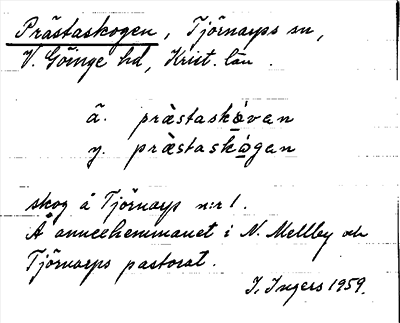 Prästaskogen, Tjörnarps sn,
V. Göinge hd, Krist. län.
ä. prästaskåvan
y. prästaskågan
skog å Tjörnarp n:r 1.
Å annexhemmanet i N. Mellby och
Tjörnarps pastorat.
I. Ingers 1959.